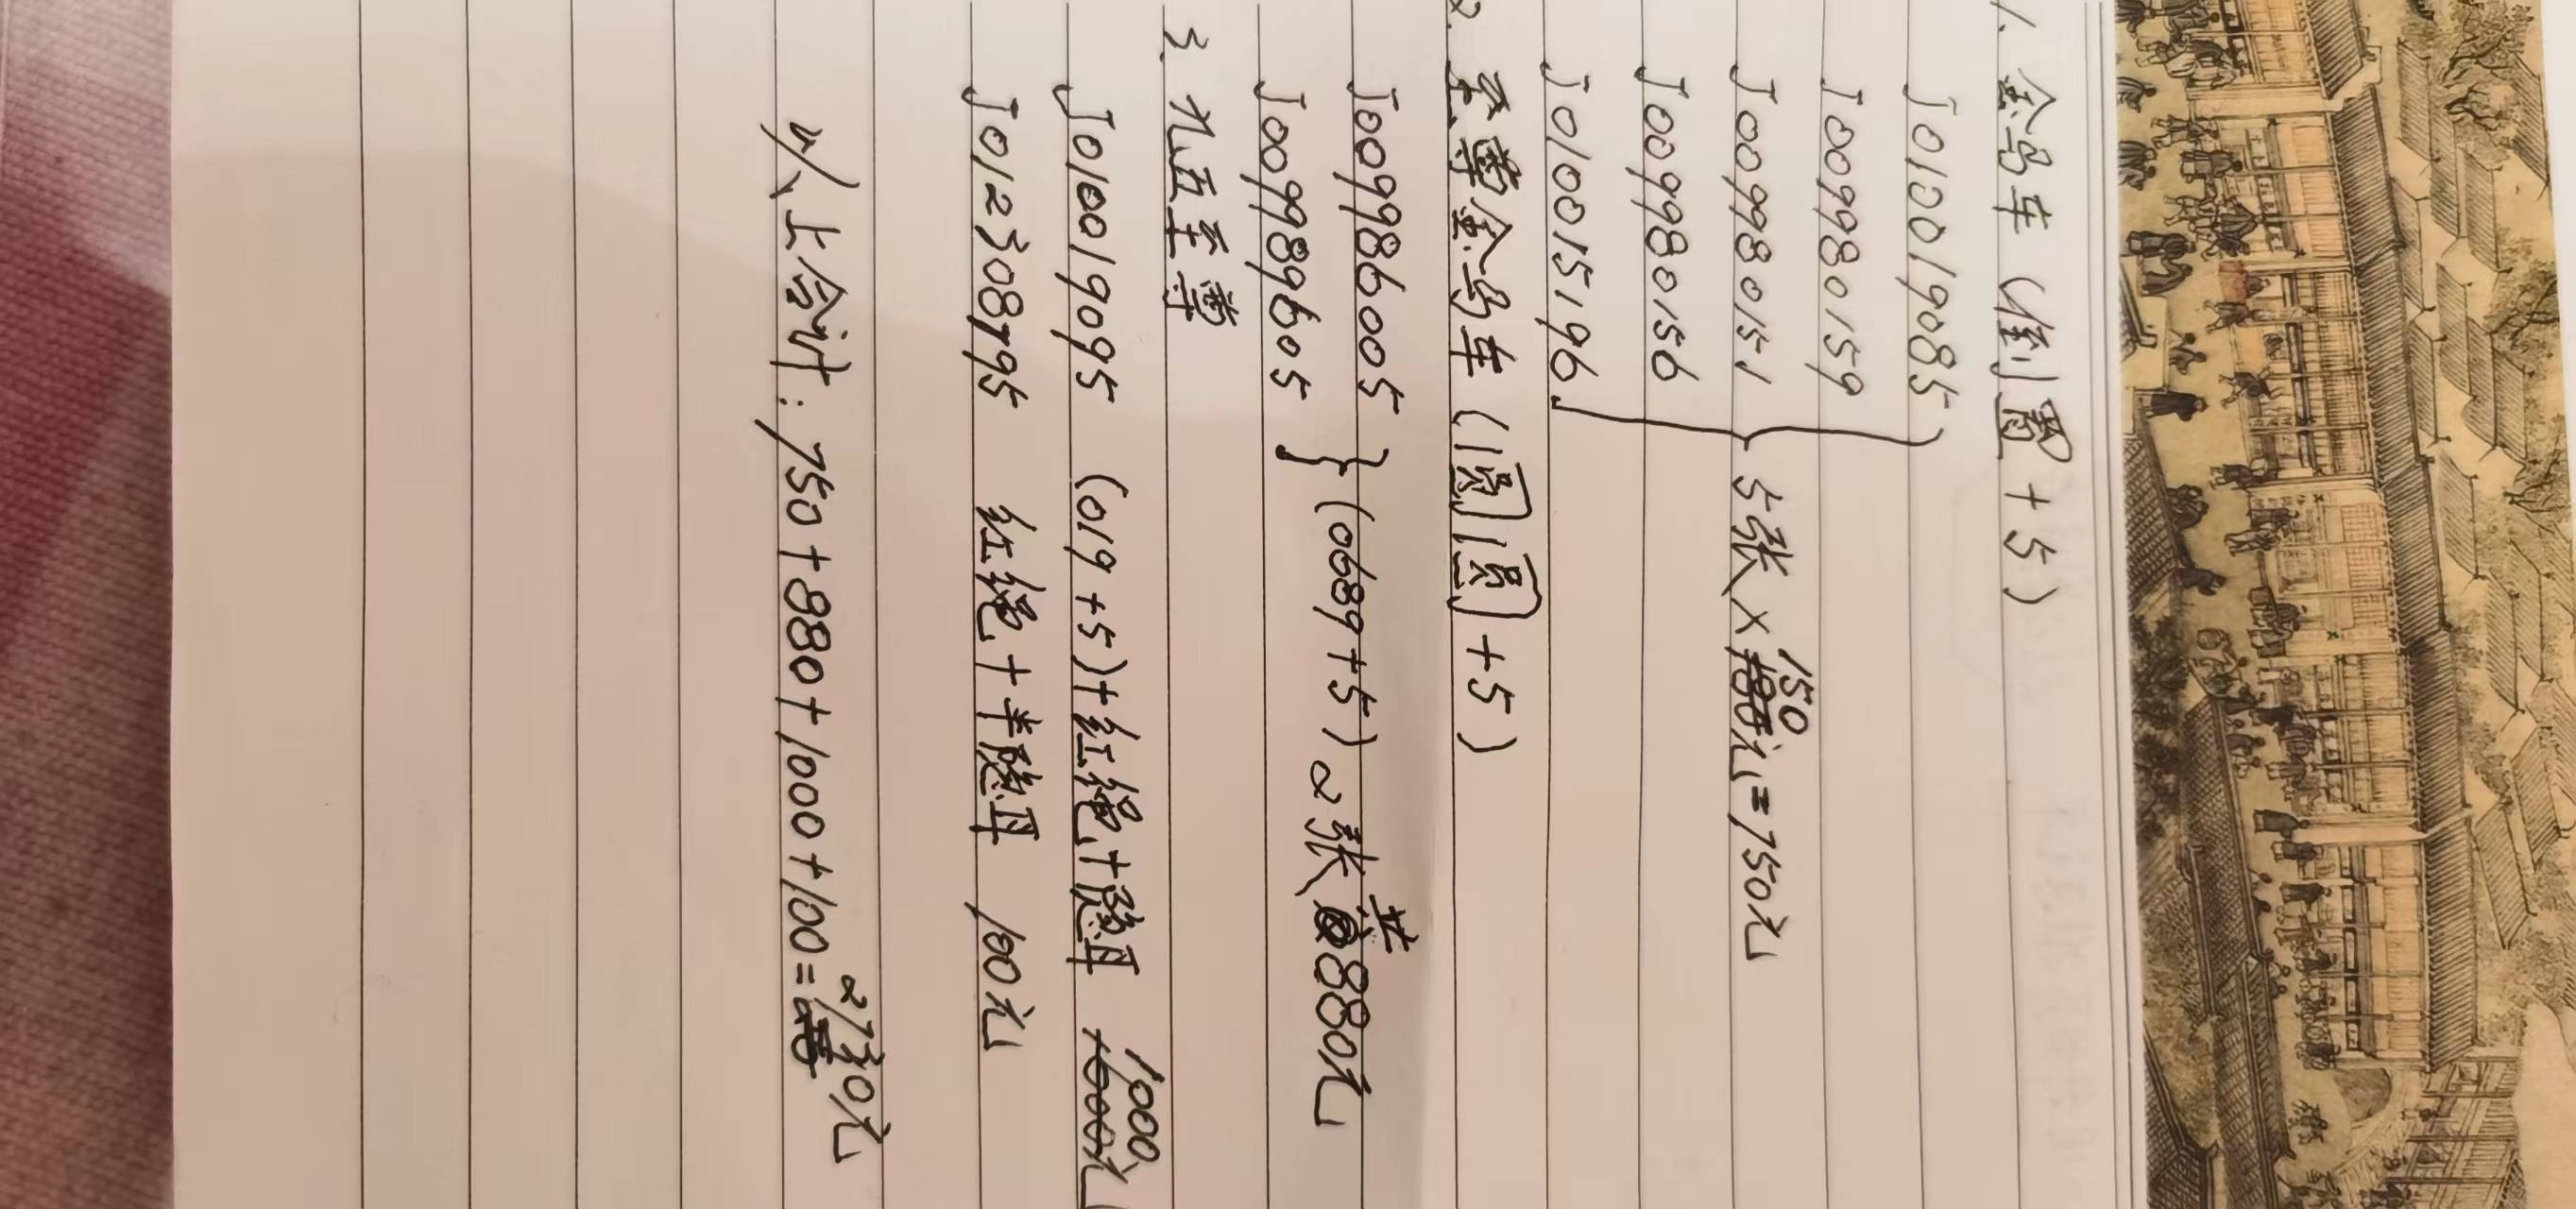 1. 金马车 (倒置 + 5)
J010019085
J009980159
J009980151
J009980156 5张×150元=750元
J010015196
2. 至尊金马车 (圆圆 + 5)
J009986005
J009989605 (0689+5) 2张 共880元
3. 九五至尊
J010019095 (019+5)+红绳+隐耳 1000元
J012308795 红绳+半隐耳 100元
以上合计: 750+880+1000+100=2730元